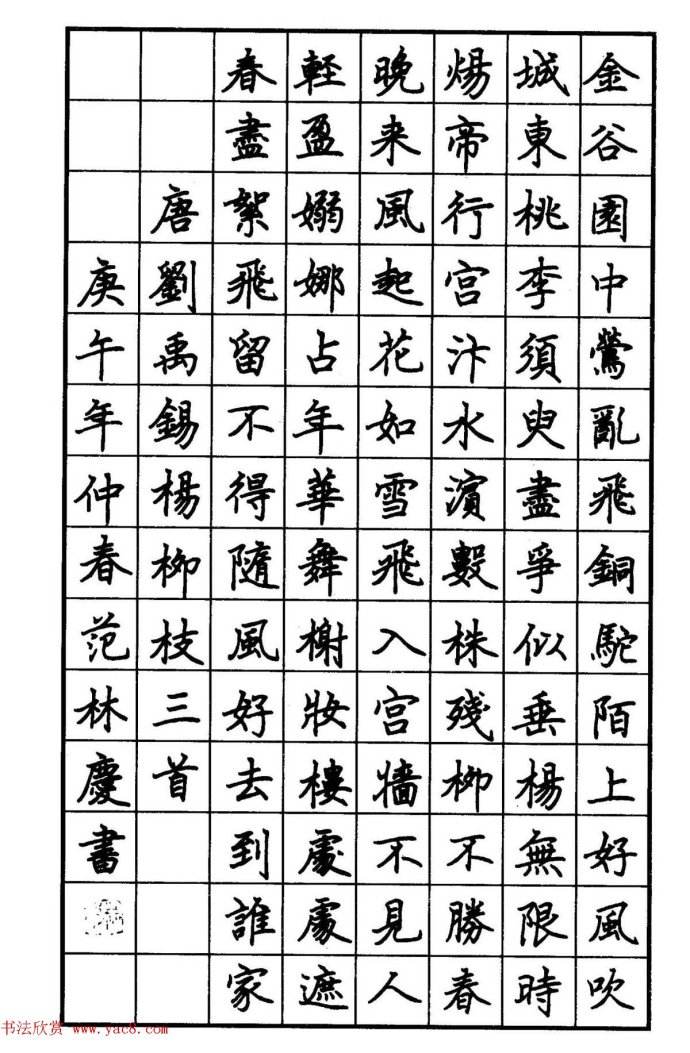 金谷園中鶯亂飛銅駝陌上好風吹
城東桃李須臾盡爭似垂楊無限時
煬帝行宮汴水濱數株殘柳不勝春
晚来風起花如雪飛入宮牆不見人
輕盈嫋娜占年華舞榭妝樓處處遮
春盡絮飛留不得隨風好去到誰家
唐劉禹錫楊柳枝三首
庚午年仲春范林慶書
书法欣赏 www.yac8.com